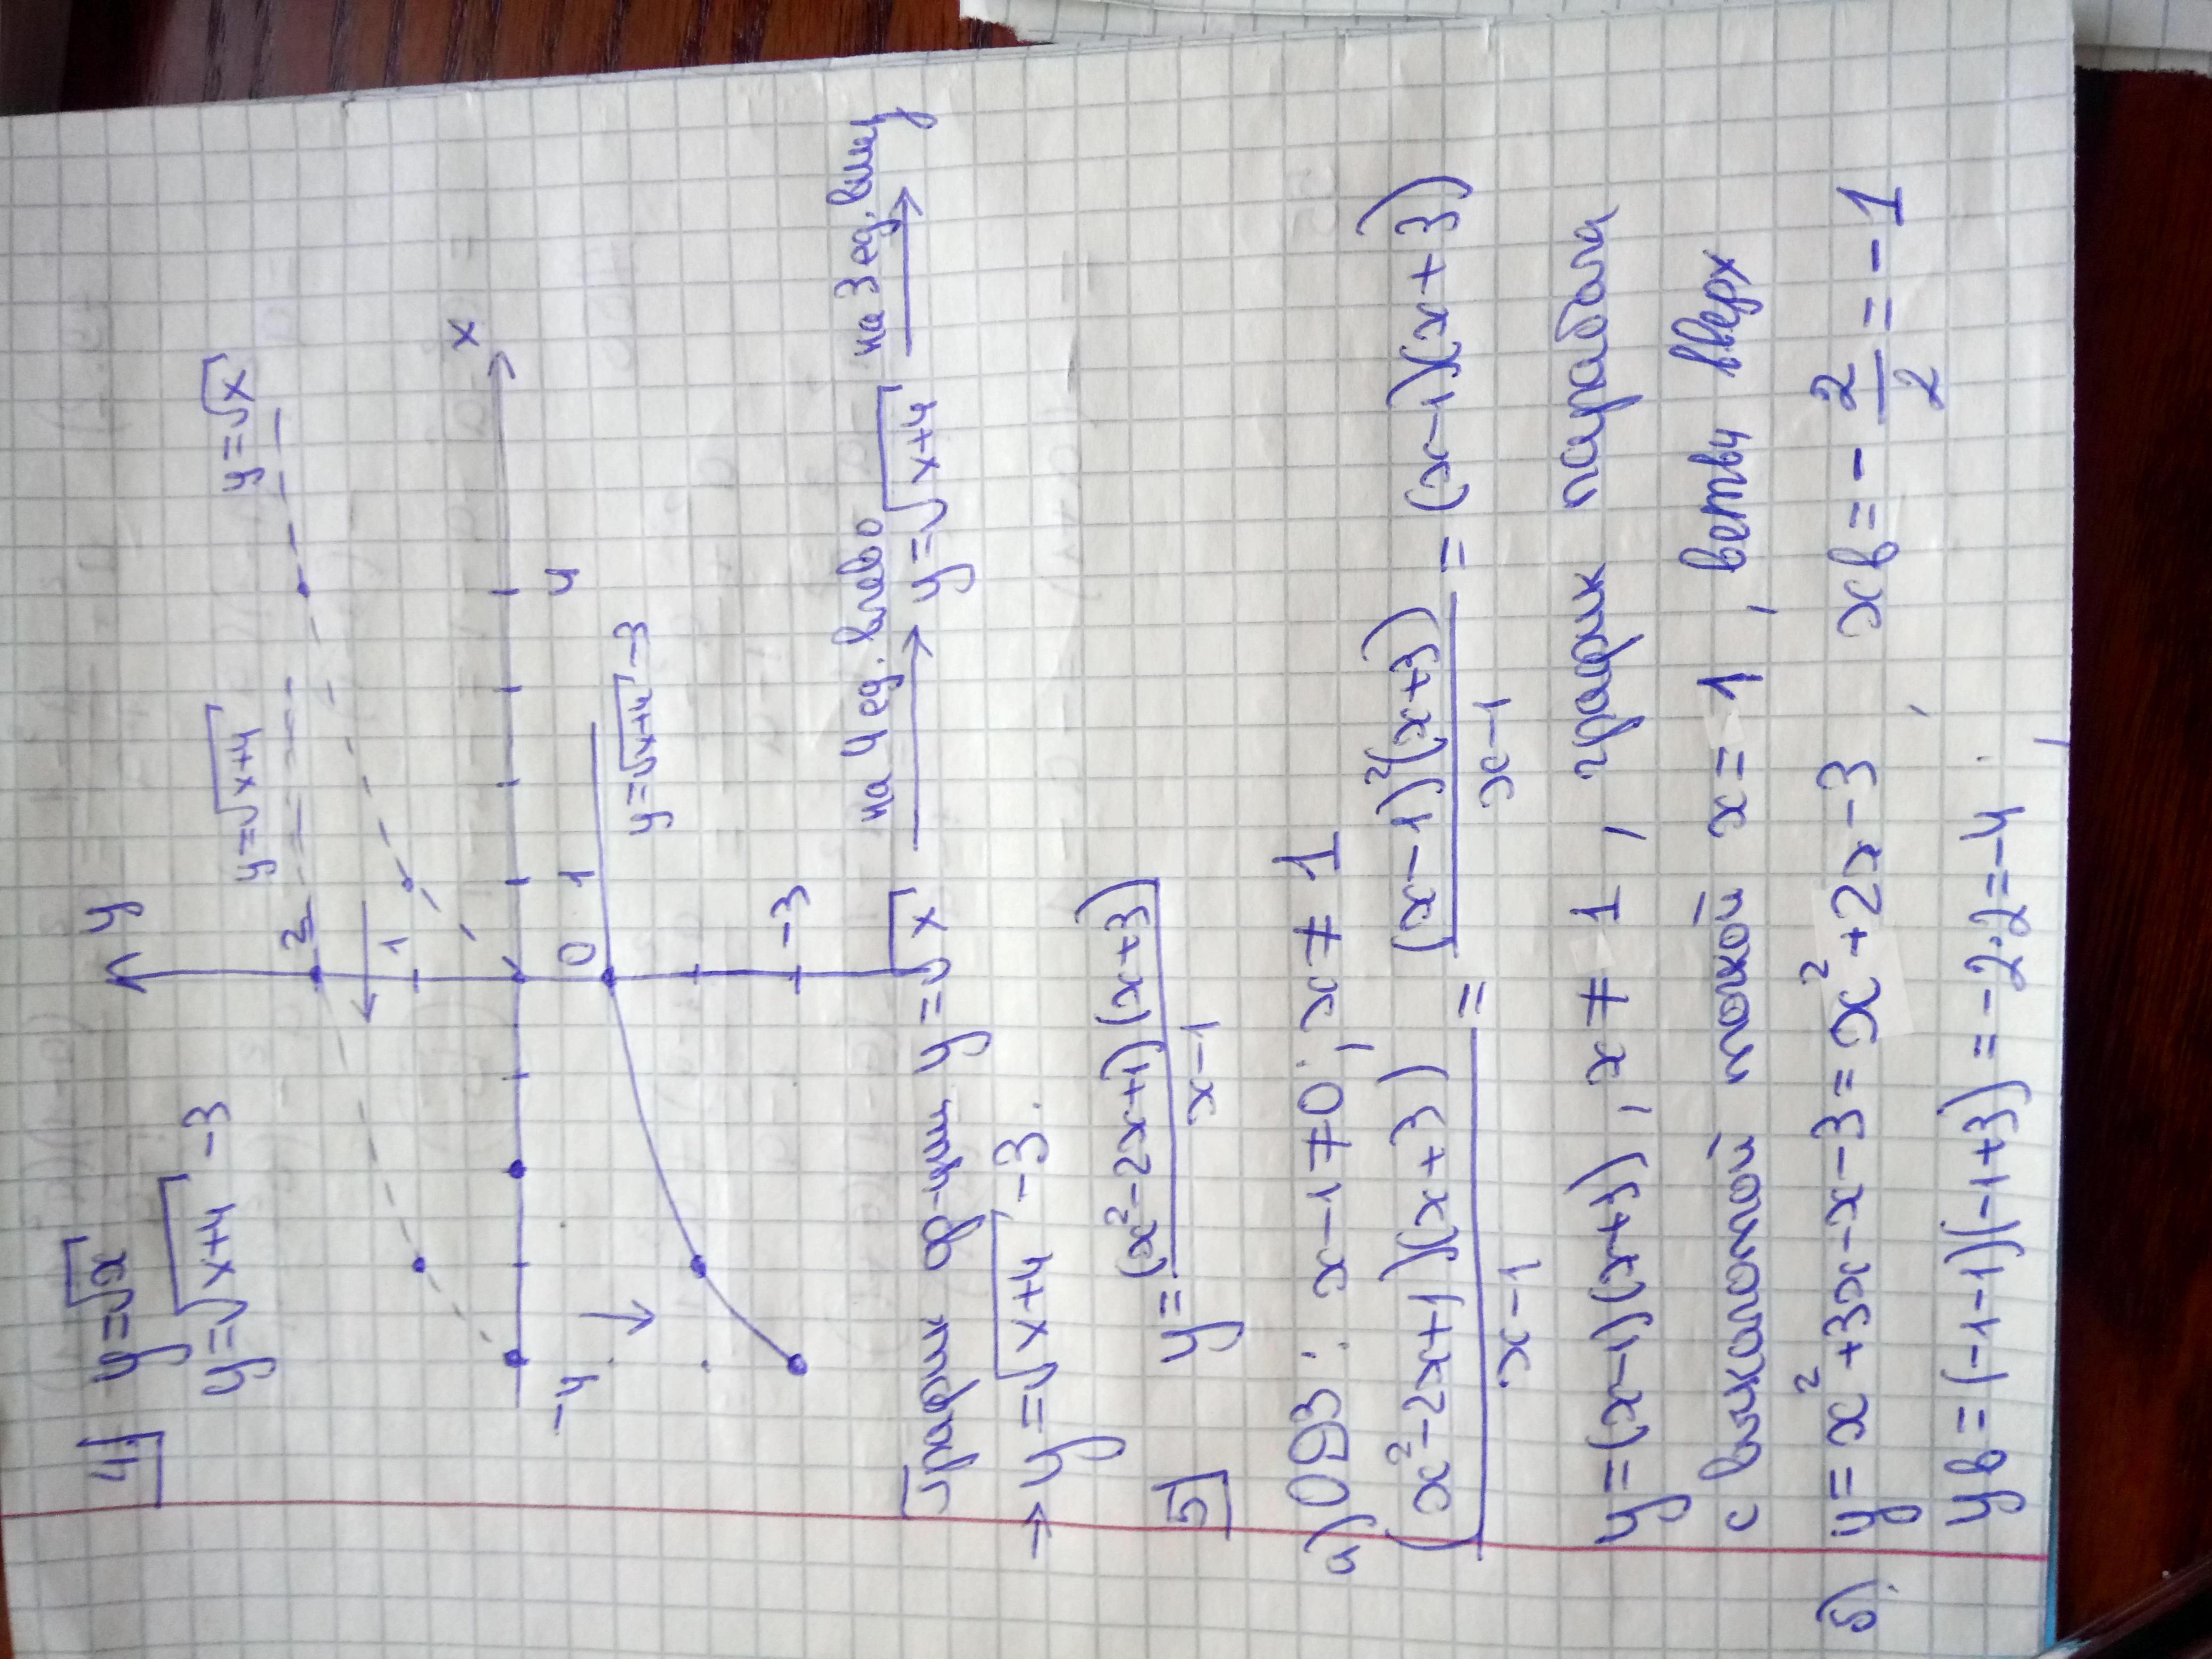 4) y=√x
y=√x+4 -3
y
y=√x+4
y=√x
2
1
x
-4
0
1
4
y=√x+4 -3
-3
График ф-ции y=√x на 4 ед. влево → y=√x+4 на 3 ед. вниз →
→ y=√x+4 -3.
5) y= (x²-2x+1)(x+3) / x-1
а) ОДЗ: x-1≠0; x≠1
(x²-2x+1)(x+3) / x-1 = (x-1)²(x+3) / x-1 = (x-1)(x+3)
y=(x-1)(x+3), x≠1, график парабола
с выколотой точкой x=1, ветви вверх
б) y=x²+3x-x-3=x²+2x-3, xв=-2/2=-1
yв=(-1-1)(-1+3)=-2·2=-4;